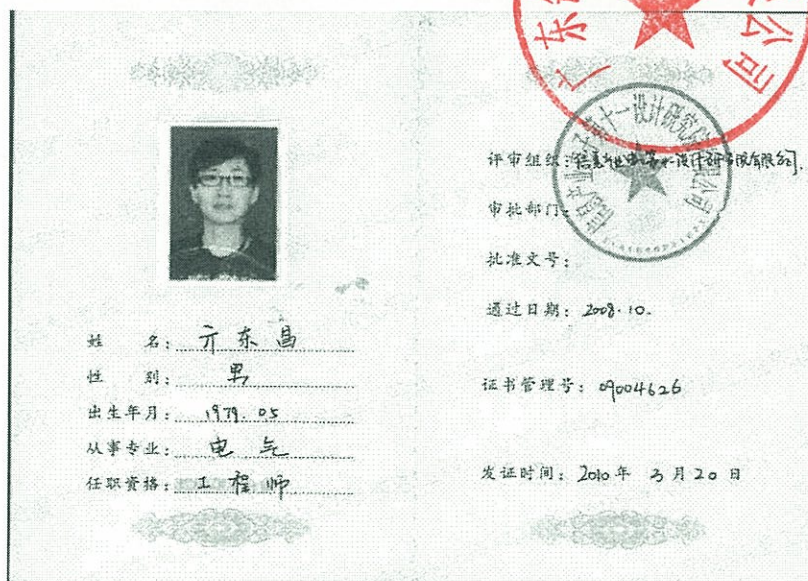 姓 名：亓东昌
性 别：男
出生年月：1979.05
从事专业：电气
任职资格：工程师
广东
公司
评审组织：信息产业电子第十一设计研究院有限公司.
信息产业电子第十一设计研究院有限公司
审批部门：
批准文号：
通过日期：2008.10.
证书管理号：09004626
发证时间：2010年 3月20日